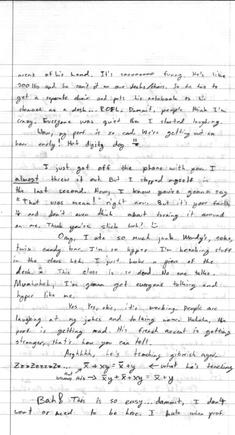 areas of his head. It's sooooooooo funny. He's like
500 lbs and he can't fit in our desks/chairs. So he has to
get a separate chair and puts his notebook to his
stomach as a desk... ROFL. Dammit, people think I'm
crazy. Everyone was quiet then I started laughing.
Wow, my prof. is so rad. We're getting out an
hour early! Hot digity dog.
I just got off the phone with you. I
almost threw it out. But I stopped myself in
the last second. Now, I know you're gonna say
"That was mean!" right now. But it's your fault
and don't even think about turning it around
on me. Think you're slick huh?
Omg, I ate so much junk. Wendy's, coke,
twix candy bar. I'm so hyper. I'm breaking stuff
in the class heh. I just broke a piece of the
desk. This class is so dead. No one talks.
Muahahah, I'm gonna get everyone talking and
hyper like me.
Yes, Yes, ohh, it's working. People are
laughing at my jokes and talking now. Hahaha, the
prof is getting mad. His french accent is getting
stronger, that's how you can tell.
Arghhhh, he's teaching gibrish again.
ZzzZzzzzzZz... x̄ + xy = x̄ + y ← what he's teaching
x̄y + x̄ + xy = x̄ + y
Bah! This is so easy... dammit, I don't
want or need to be here. I hate when prof.